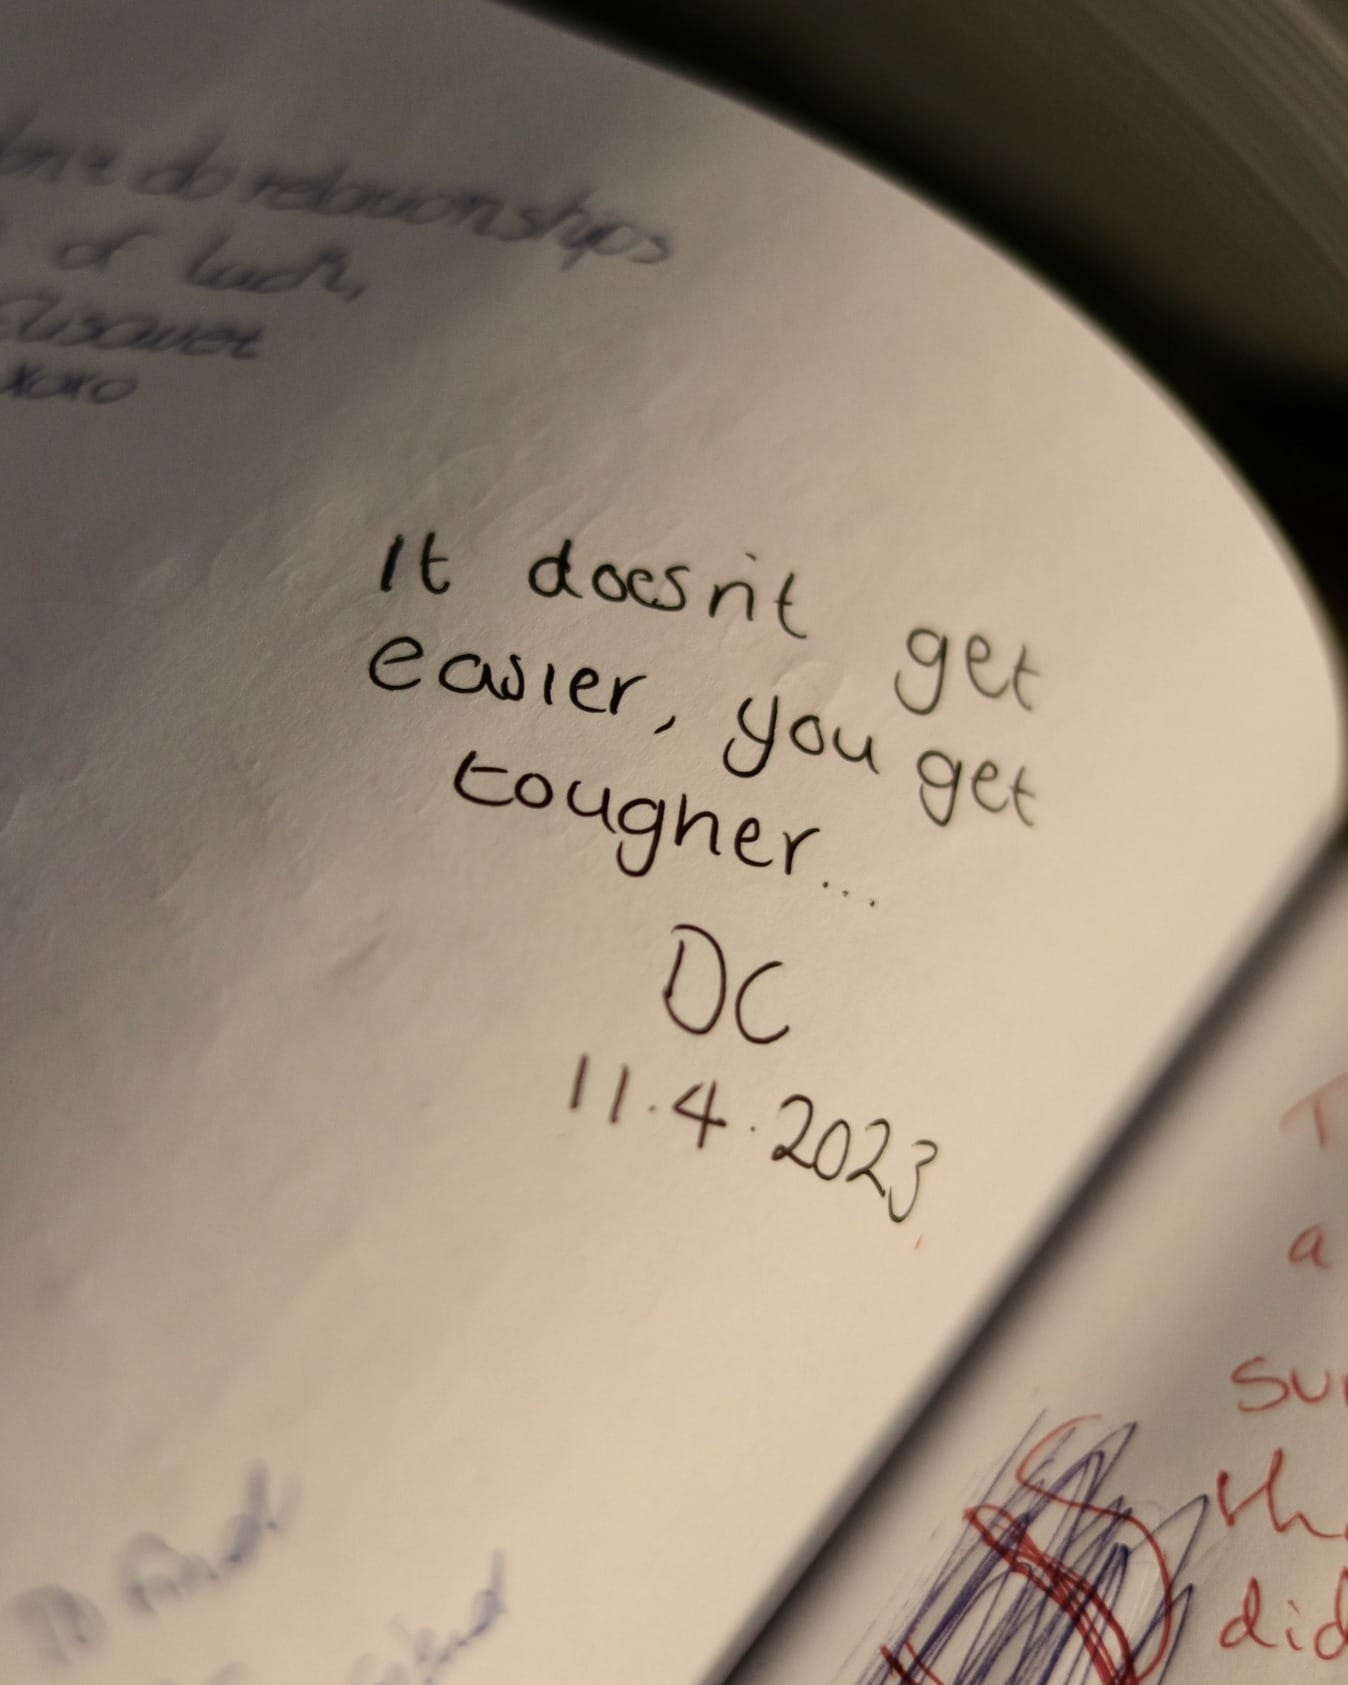 do relationships
of luck,
xoxo
It doesn't get
easier, you get
tougher...
DC
11.4.2023
to find
T
a
su
the
did